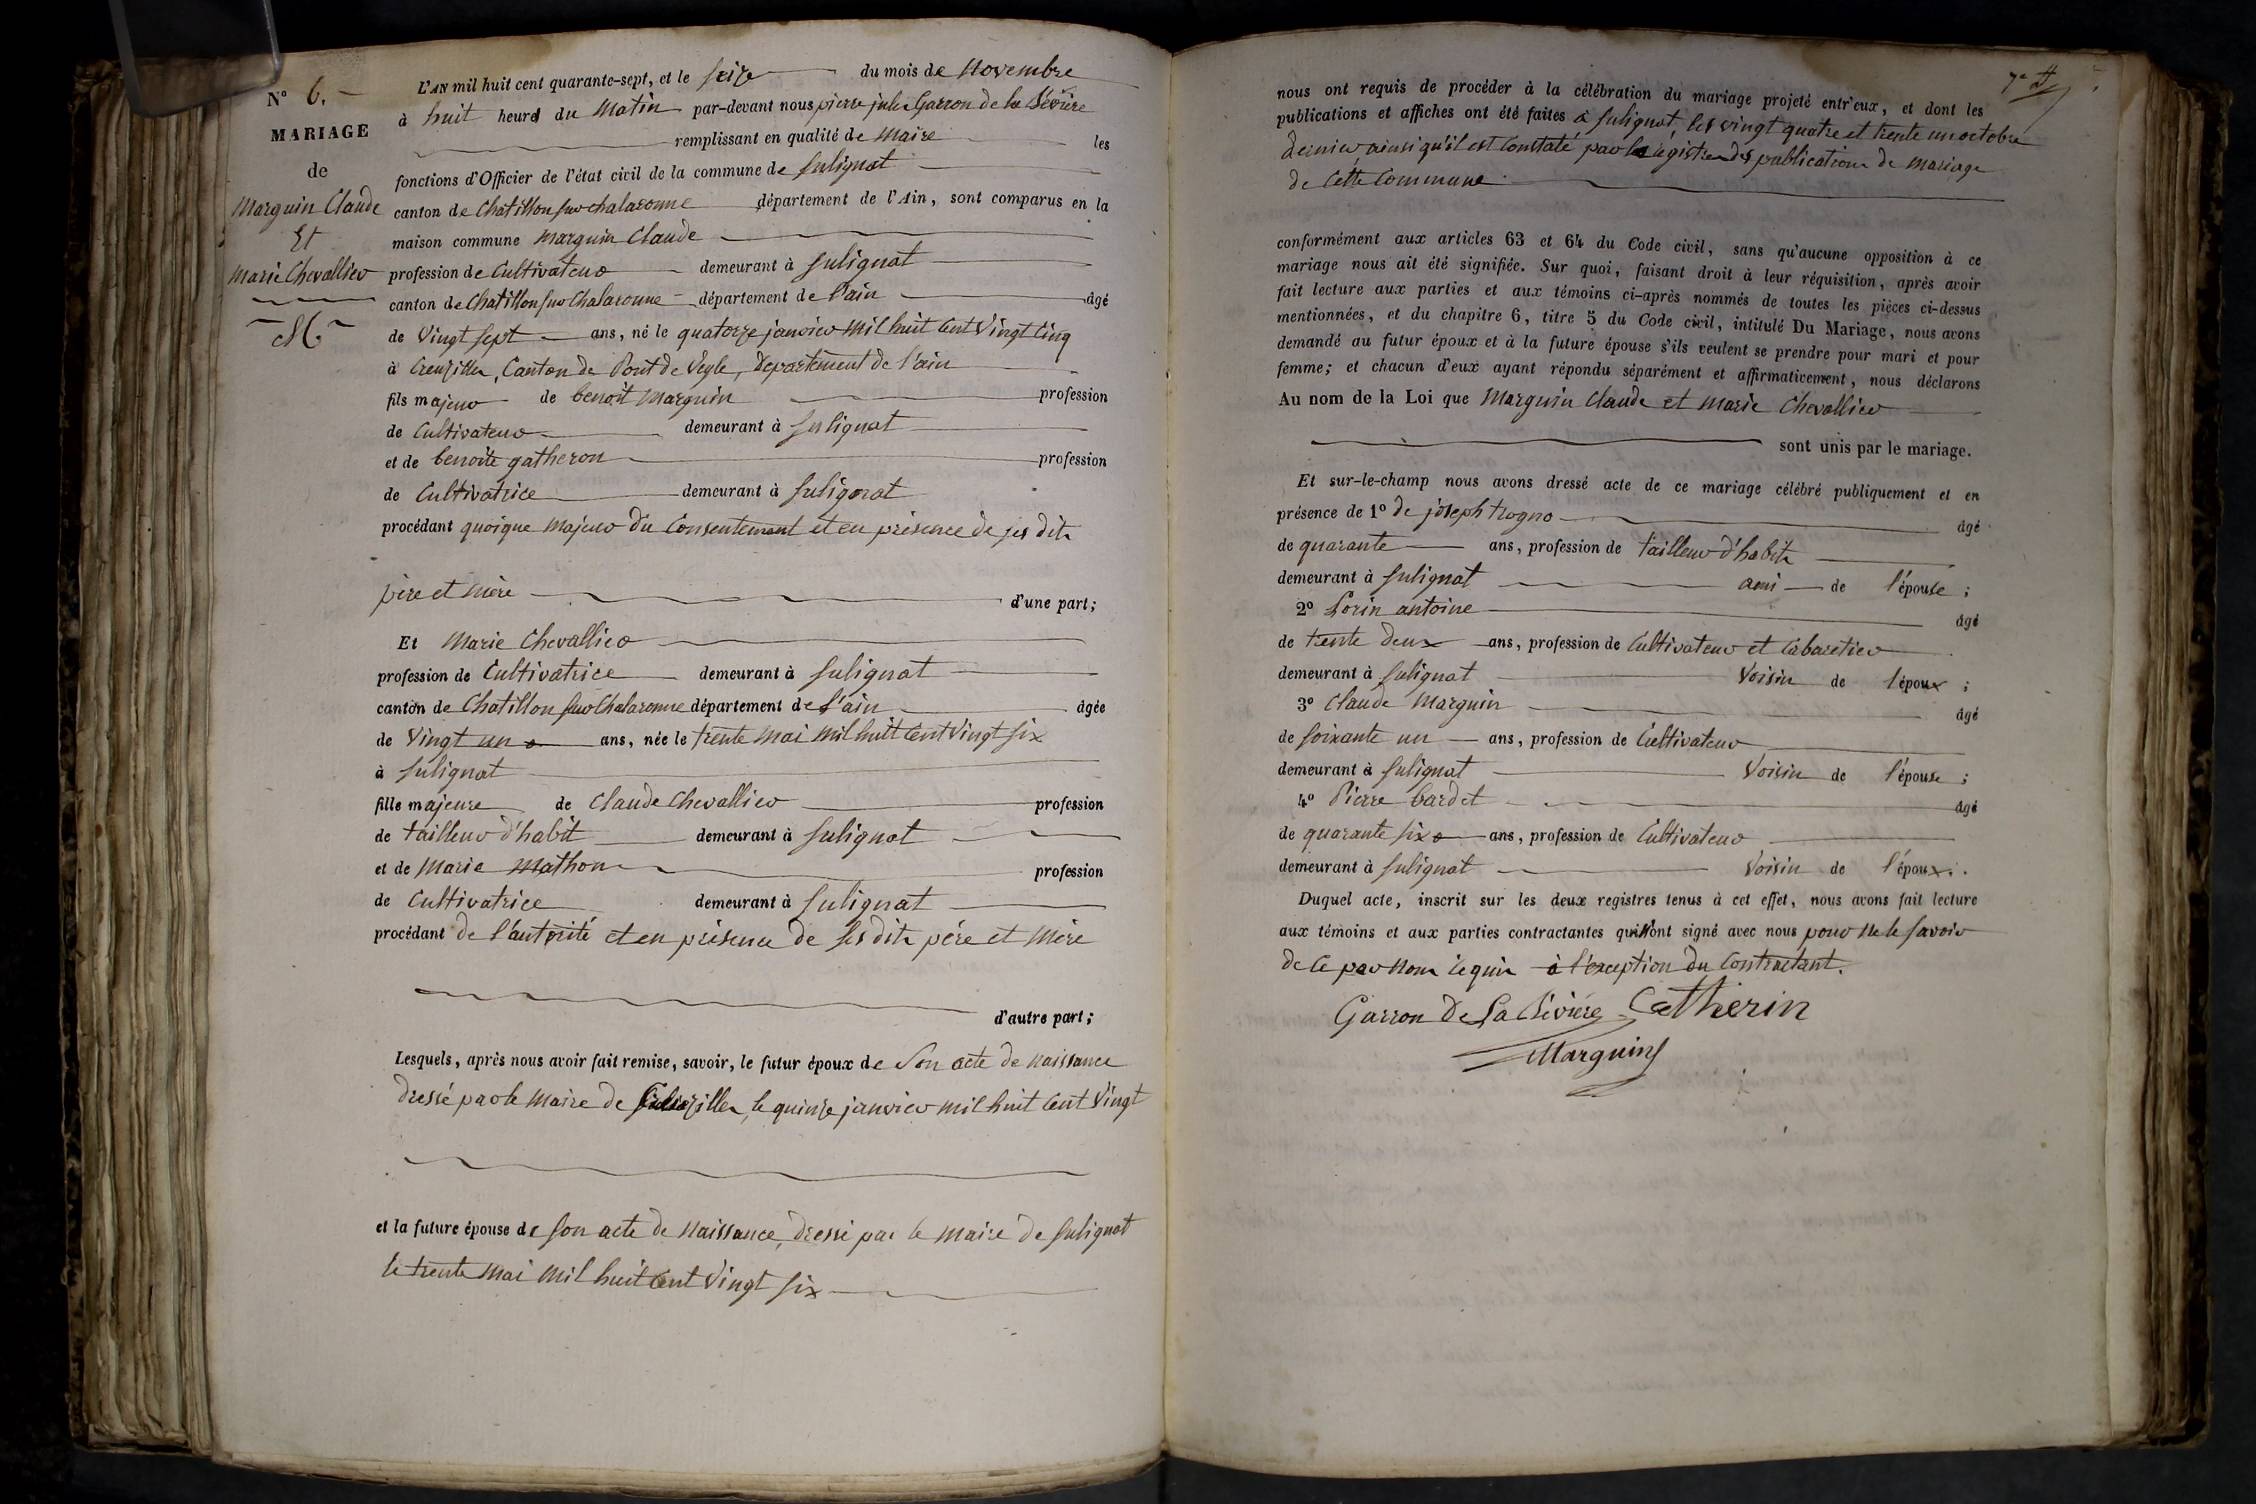 N° 6.
MARIAGE
de
Marguin Claude
Et
Marie Chevallier
L'AN mil huit cent quarante-sept, et le seize du mois de Novembre
à huit heures du Matin par-devant nous pierre jules Garron de la Bévière
remplissant en qualité de Maire les
fonctions d'Officier de l'état civil de la commune de Sulignat
canton de Chatillon sur chalaronne département de l'Ain, sont comparus en la
maison commune Marguin Claude
profession de Cultivateur demeurant à Sulignat
canton de Chatillon sur Chalaronne département de l'ain âgé
de Vingt sept ans, né le quatorze janvier Mil huit Cent Vingt Cinq
à Creuzilles, Canton de Pont de Veyle, Département de l'ain
fils majeur de benoit Marguin profession
de Cultivateur demeurant à Sulignat
et de benoite gatheron profession
de Cultivatrice demeurant à Sulignat
procédant quoique Majeur du Consentement et en présence de ses dits
père et Mère d'une part;
Et Marie Chevallier
profession de Cultivatrice demeurant à Sulignat
canton de Chatillon sur Chalaronne département de l'ain âgée
de Vingt un ans, née le trente Mai Mil huit Cent Vingt six
à Sulignat
fille majeure de Claude Chevallier profession
de tailleur d'habit demeurant à Sulignat
et de Marie Mathon profession
de Cultivatrice demeurant à Sulignat
procédant de l'autorité et en présence de ses dits père et Mère
d'autre part;
Lesquels, après nous avoir fait remise, savoir, le futur époux de Son acte de Naissance
dressé par le Maire de le quinze janvier Mil huit Cent Vingt
et la future épouse de Son acte de Naissance, dressé par le Maire de Sulignat
le trente Mai Mil huit Cent Vingt six
nous ont requis de procéder à la célébration du mariage projeté entr'eux, et dont les
publications et affiches ont été faites à Sulignat, les vingt quatre et trente un octobre
dernier ainsi qu'il est Constaté par le registre des publications de Mariage
de Cette Commune.
conformément aux articles 63 et 64 du Code civil, sans qu'aucune opposition à ce
mariage nous ait été signifiée. Sur quoi, faisant droit à leur réquisition, après avoir
fait lecture aux parties et aux témoins ci-après nommés de toutes les pièces ci-dessus
mentionnées, et du chapitre 6, titre 5 du Code civil, intitulé Du Mariage, nous avons
demandé au futur époux et à la future épouse s'ils veulent se prendre pour mari et pour
femme; et chacun d'eux ayant répondu séparément et affirmativement, nous déclarons
Au nom de la Loi que Marguin Claude et Marie Chevallier
sont unis par le mariage.
Et sur-le-champ nous avons dressé acte de ce mariage célébré publiquement et en
présence de 1° de joseph trogno âgé
de quarante ans, profession de tailleur d'habits
demeurant à Sulignat ami de l'épouse;
2° Lorin antoine âgé
de trente deux ans, profession de Cultivateur et Cabaretier
demeurant à Sulignat Voisin de l'époux;
3° Claude Marguin âgé
de soixante un ans, profession de Cultivateur
demeurant à Sulignat Voisin de l'épouse;
4° Pierre bardet âgé
de quarante six ans, profession de Cultivateur
demeurant à Sulignat Voisin de l'époux.
Duquel acte, inscrit sur les deux registres tenus à cet effet, nous avons fait lecture
aux témoins et aux parties contractantes qui n'ont signé avec nous pour Ne le Savoir
de Ce par Nous requis à l'exception du Contractant.
Garron De La Bévière Catherin
Marguin